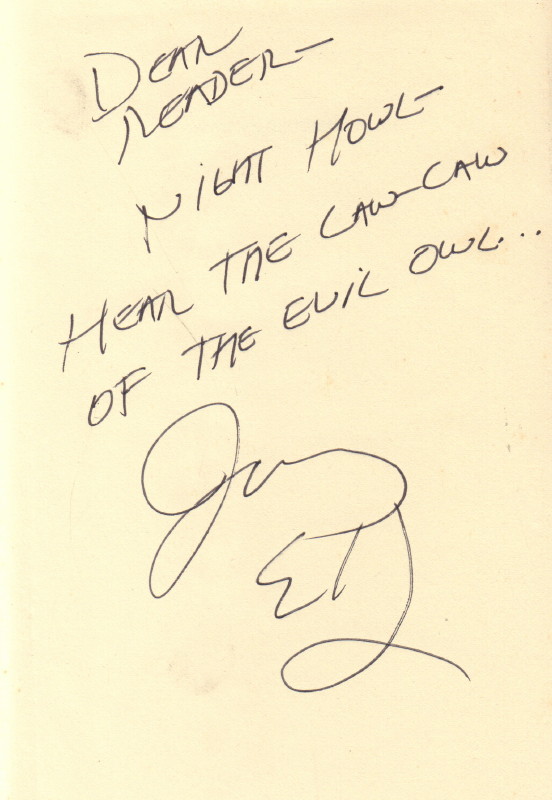 DEAR
READER—
NIGHT HOWL—
HEAR THE CAW-CAW
OF THE EVIL OWL...